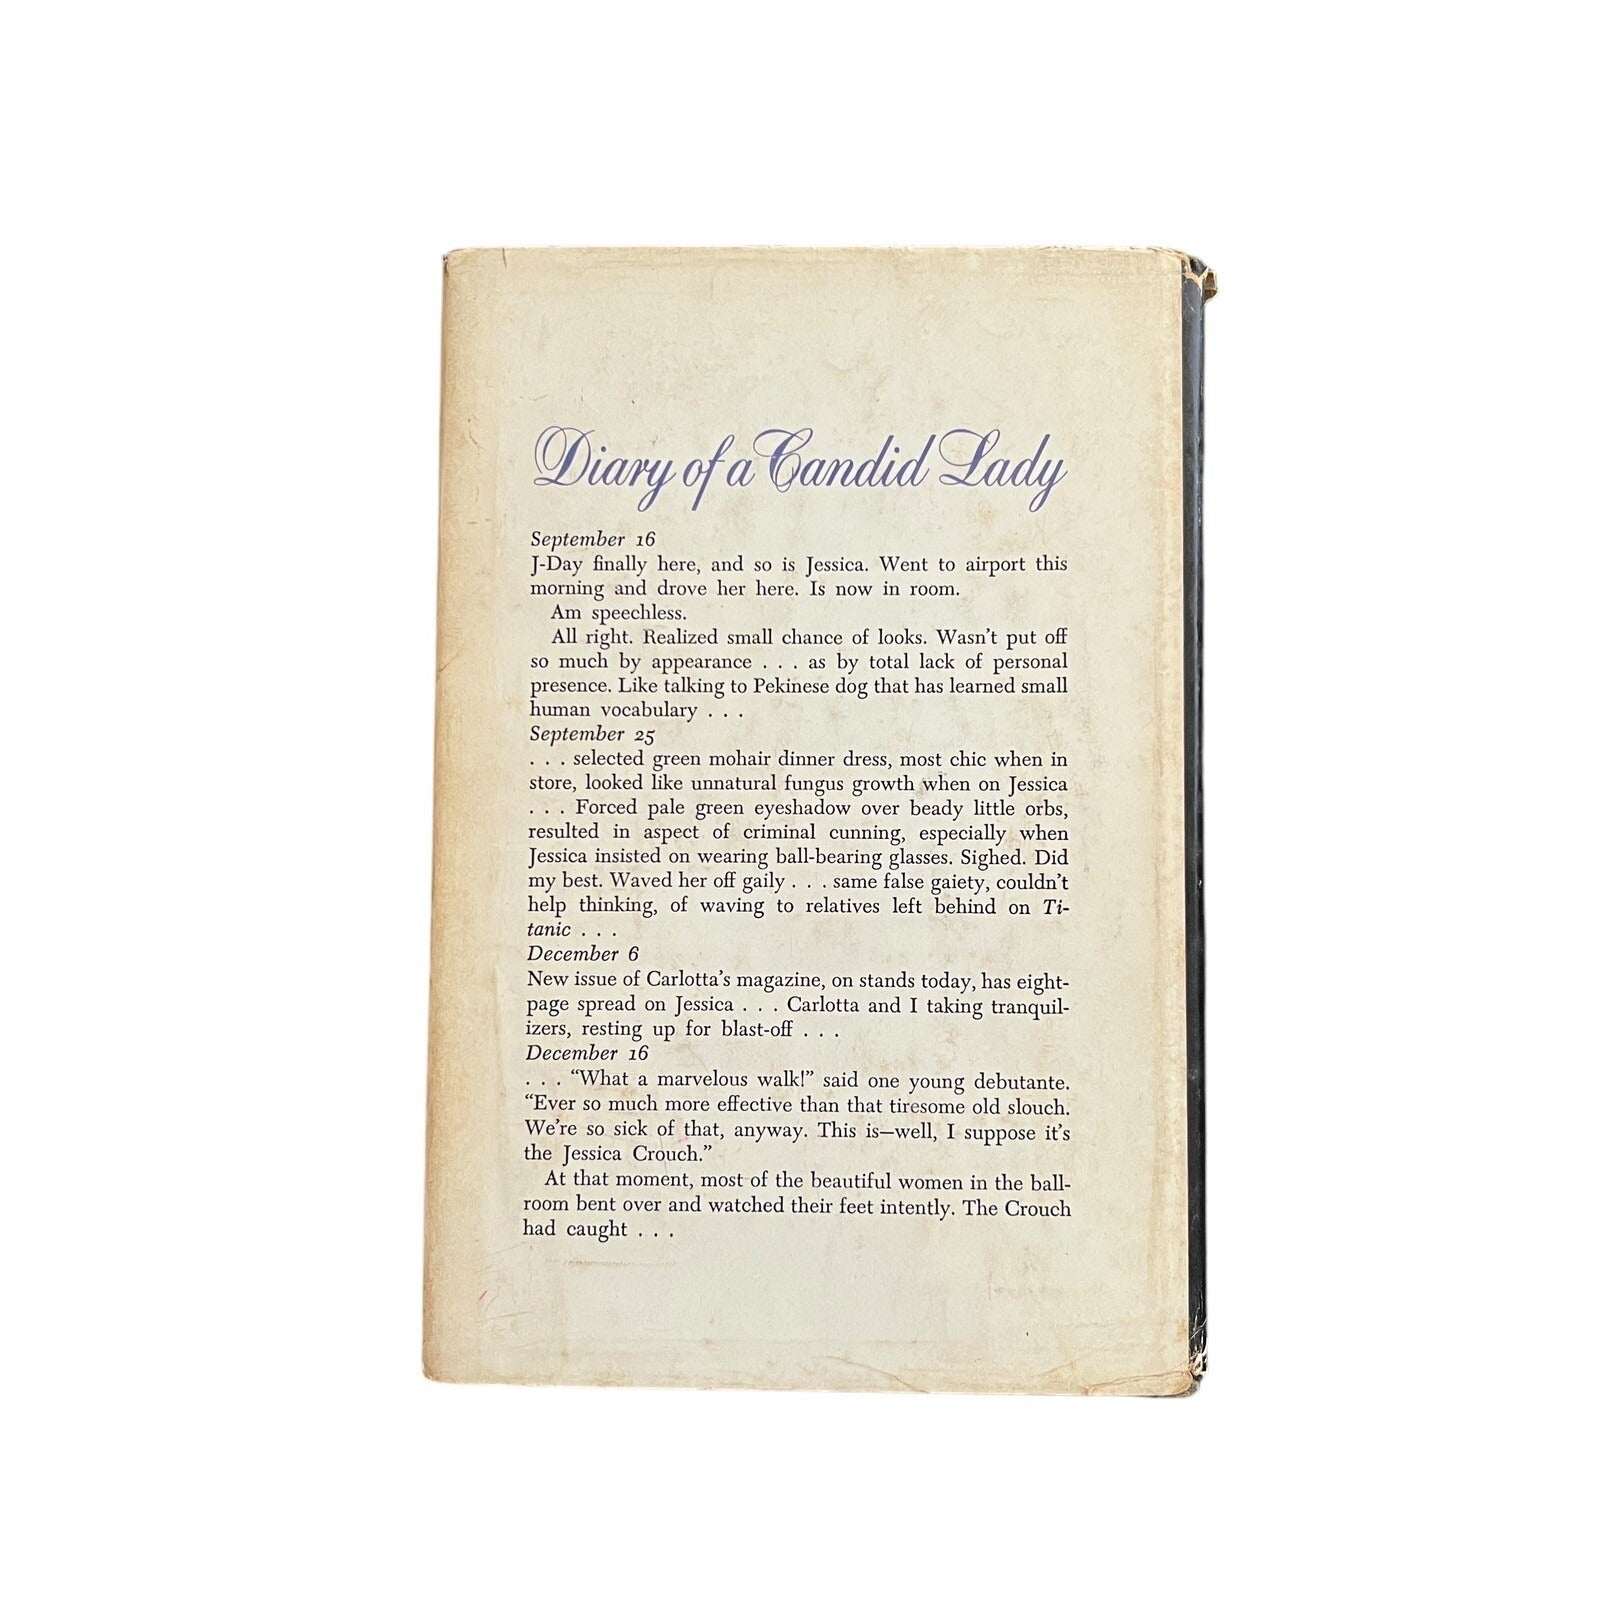 Diary of a Candid Lady
September 16
J-Day finally here, and so is Jessica. Went to airport this
morning and drove her here. Is now in room.
Am speechless.
All right. Realized small chance of looks. Wasn't put off
so much by appearance . . . as by total lack of personal
presence. Like talking to Pekinese dog that has learned small
human vocabulary . . .
September 25
. . . selected green mohair dinner dress, most chic when in
store, looked like unnatural fungus growth when on Jessica
. . . Forced pale green eyeshadow over beady little orbs,
resulted in aspect of criminal cunning, especially when
Jessica insisted on wearing ball-bearing glasses. Sighed. Did
my best. Waved her off gaily . . . same false gaiety, couldn't
help thinking, of waving to relatives left behind on Ti-
tanic . . .
December 6
New issue of Carlotta's magazine, on stands today, has eight-
page spread on Jessica . . . Carlotta and I taking tranquil-
izers, resting up for blast-off . . .
December 16
. . . “What a marvelous walk!” said one young debutante.
“Ever so much more effective than that tiresome old slouch.
We're so sick of that, anyway. This is—well, I suppose it's
the Jessica Crouch.”
At that moment, most of the beautiful women in the ball-
room bent over and watched their feet intently. The Crouch
had caught . . .